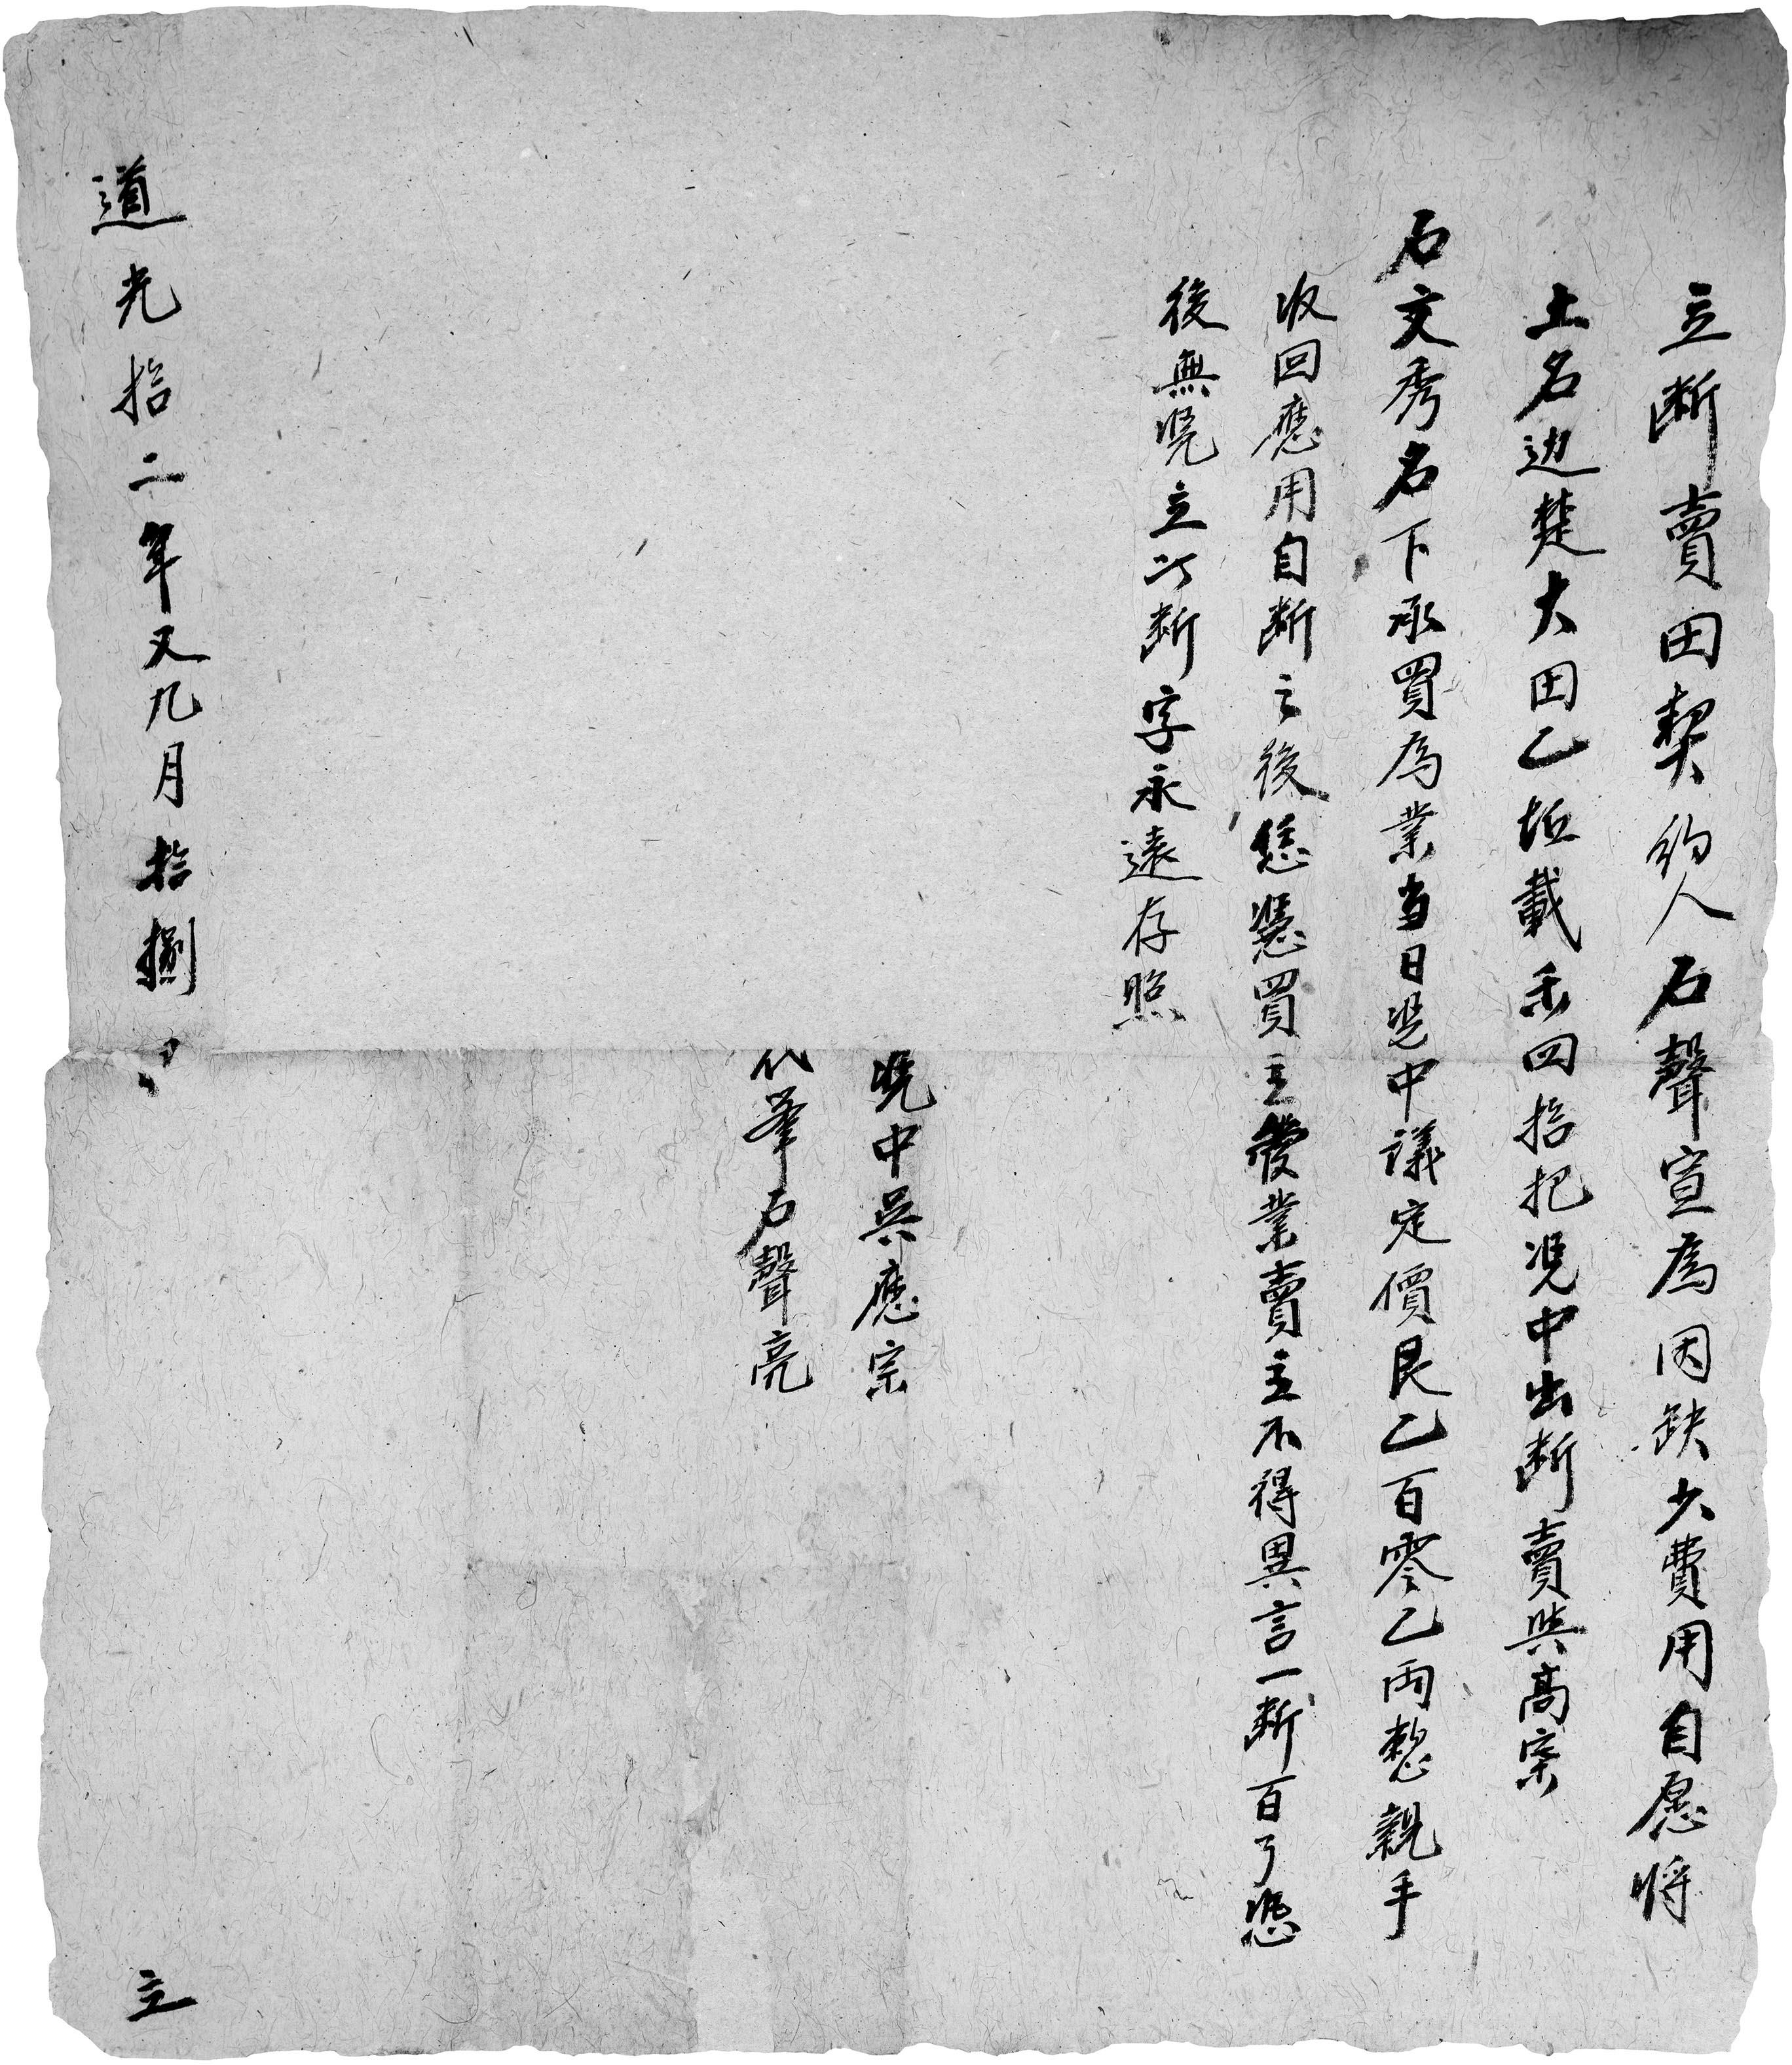 立断賣田契約人石聲宣為因缺少費用自愿将
土名边楚大田乙坵載禾四拾把凴中出断賣與髙宗
石文秀名下承買為業当日凴中議定價艮乙百零乙両整親手
收回應用自断之後恁慿買主管業賣主不得異言一断百了恐
後無凴立此断字永遠存照
凴中吳應宗
代筆石聲亮
道光拾二年又九月拾捌日 立